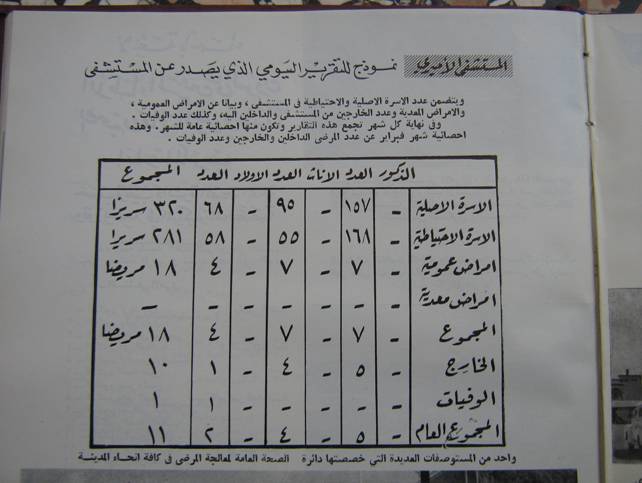 المستشفى الأميري نموذج للتقرير اليومي الذي يصدر عن المستشفى
ويتضمن عدد الاسرة الاصلية والاحتياطية في المستشفى ، وبيانا عن الامراض العمومية ،
والامراض المعدية وعدد الخارجين من المستشفى والداخلين اليه، وكذلك عدد الوفيات .
وفي نهاية كل شهر تجمع هذه التقارير وتكون منها احصائية عامة للشهر. وهذه
احصائية شهر فبراير عن عدد المرضى الداخلين والخارجين وعدد الوفيات .
الذكور العدد الاناث العدد الاولاد العدد المجموع
الاسرة الاصلية - ١٥٧ - ٩٥ - ٦٨ ٣٢٠ سريرا
الاسرة الاحتياطية - ١٦٨ - ٥٥ - ٥٨ ٢٨١ سريرا
امراض عمومية - ٧ - ٧ - ٤ ١٨ مريضا
امراض معدية - - - - - - -
المجموع - ٧ - ٧ - ٤ ١٨ مريضا
الخارج - ٥ - ٤ - ١ ١٠
الوفيات - - - - - ١ ١
المجموع العام - ٥ - ٤ - ٢ ١١
واحد من المستوصفات العديدة التي خصصتها دائرة الصحة العامة لمعالجة المرضى في كافة انحاء المدينة